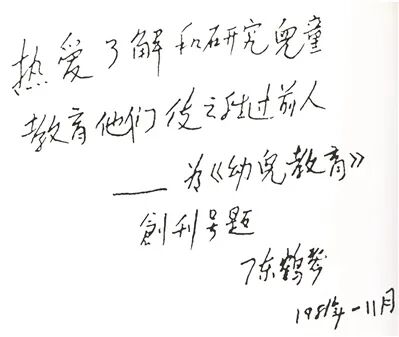 热爱了解和研究兒童
教育他们使之胜过前人
——为《幼兒教育》
創刊号题
陈鹤琴
1981年-11月